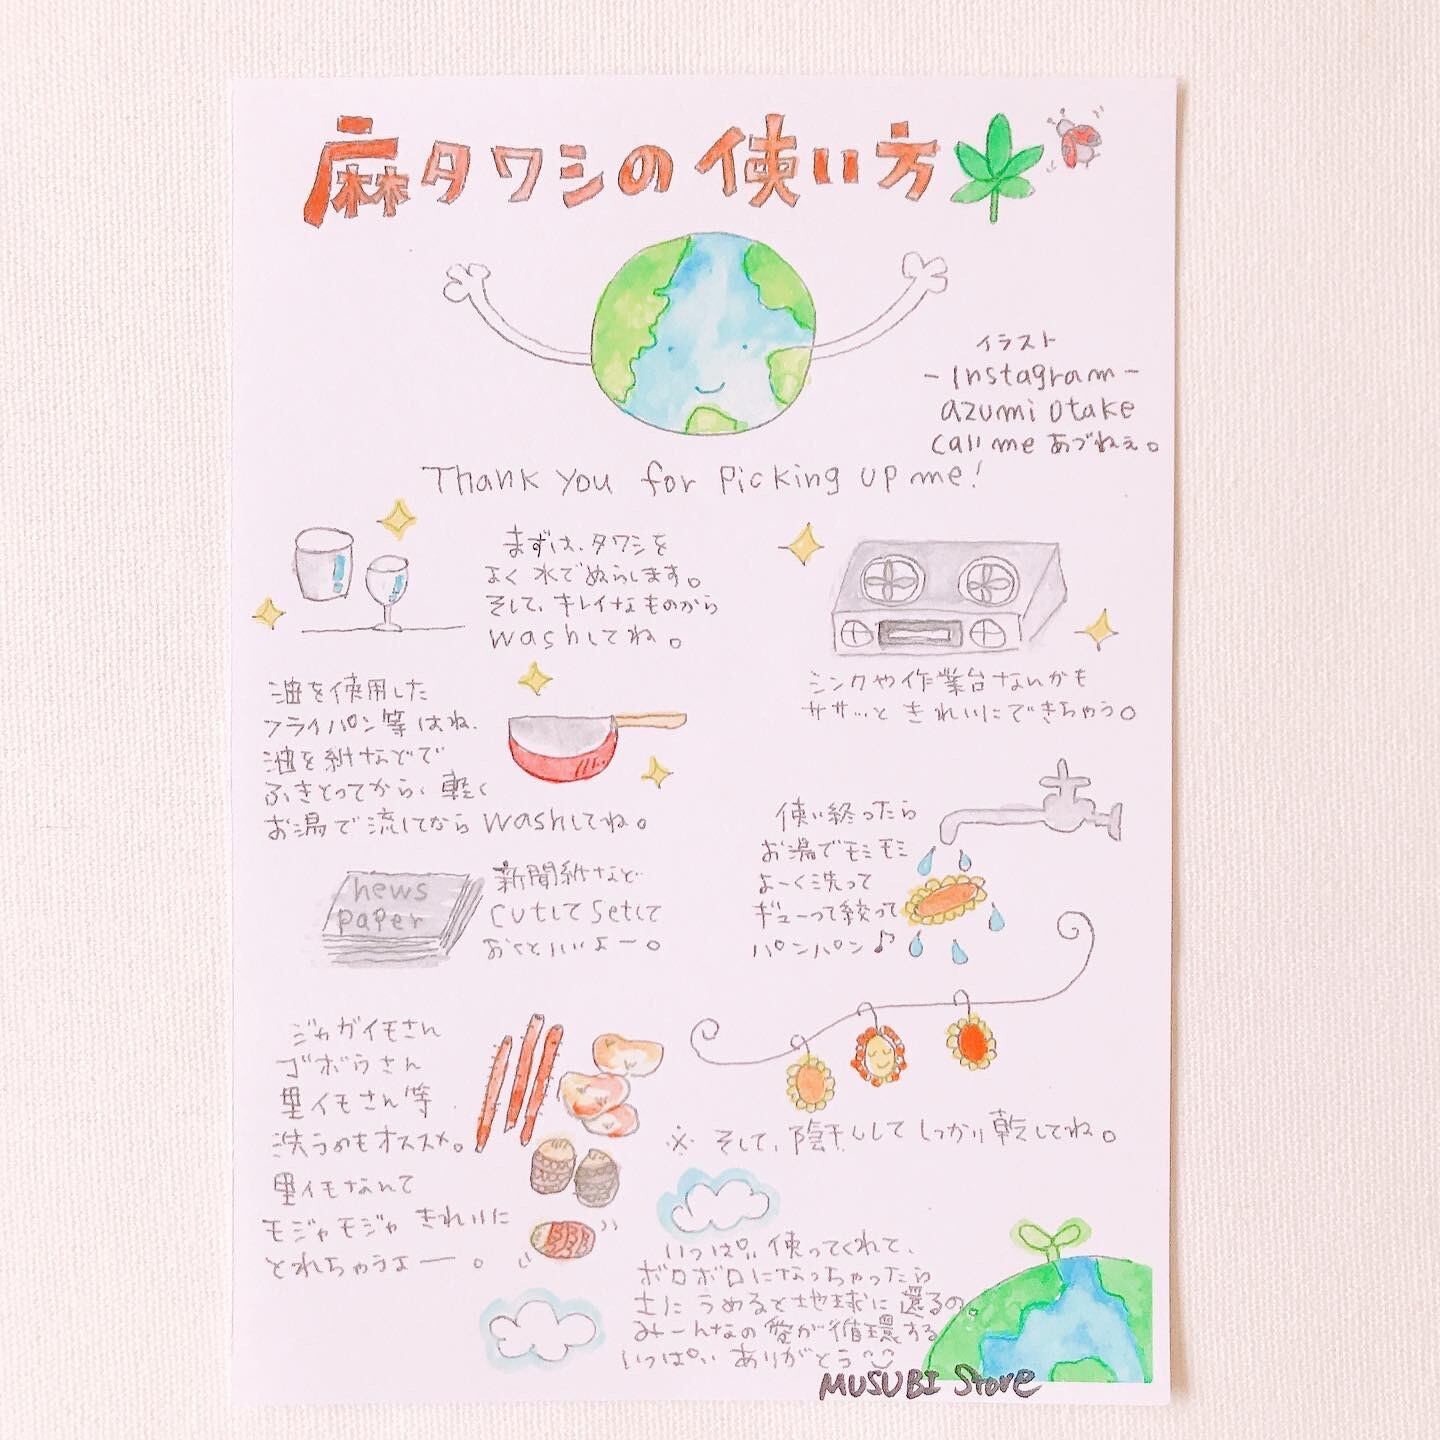 麻タワシの使い方
イラスト
-Instagram-
azumi otake
call me あづねぇ。
Thank you for picking up me!
まずは、タワシを
よく水でぬらします。
そして、キレイなものから
washしてね。
シンクや作業台なんかも
ササッときれいにできちゃう。
油を使用した
フライパン等はね、
油を紙などで
ふきとってから、軽く
お湯で流してからwashしてね。
新聞紙など
cutしてsetして
おくといいよー。
news
paper
使い終ったら
お湯でモミモミ
よーく洗って
ギューって絞って
パンパン♪
ジャガイモさん
ゴボウさん
里イモさん等
洗うのもオススメ。
里イモなんて
モジャモジャきれいに
とれちゃうよー。
※そして、陰干ししてしっかり乾してね。
いっぱい使ってくれて、
ボロボロになっちゃったら
土にうめると地球に還るの。
みーんなの愛が循環する
いっぱいありがとう
MUSUBI Store